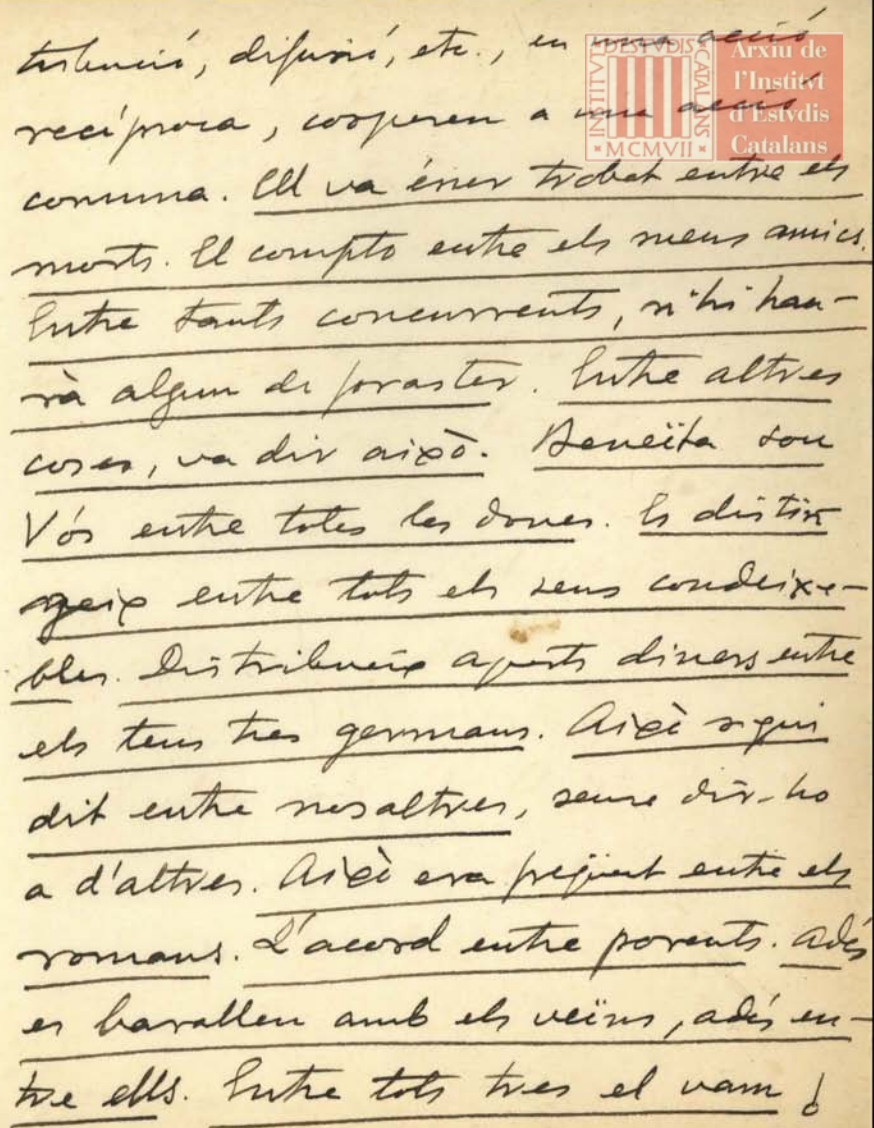 tribució, difusió, etc., en una acció
recíproca, cooperen a una acció
comuna. Ell va ésser trobat entre els
morts. El compto entre els meus amics.
Entre tants concurrents, n'hi hau-
rà algun de foraster. Entre altres
coses, va dir això. Beneïta sou
Vós entre totes les dones. Es distin
geix entre tots els seus condeixe-
bles. Distribueix aquests diners entre
els teus tres germans. Així sigui
dit entre nosaltres, sense dir-ho
a d'altres. Així era freqüent entre els
romans. L'acord entre parents. Adés
es barallen amb els veïns, adés en-
tre ells. Entre tots tres el vam
INSTITVT D'ESTVDIS CATALANS
MCMVII
Arxiu de
l'Institvt
d'Estvdis
Catalans